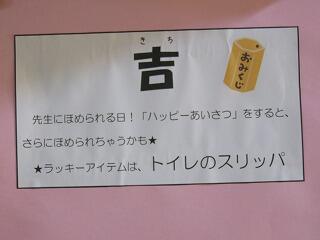 きち
吉
おみくじ
先生にほめられる日!「ハッピーあいさつ」をすると、
さらにほめられちゃうかも★
★ラッキーアイテムは、トイレのスリッパ